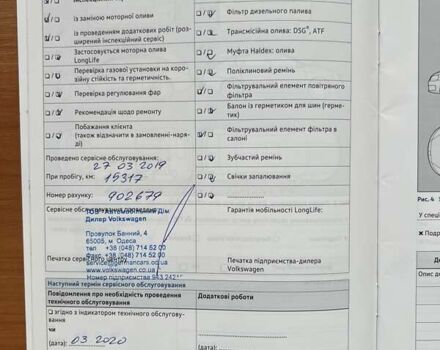 із заміною моторної оливи
із проведенням додаткових робіт (роз-
ширений інспекційний сервіс)
Застосовується моторна олива
LongLife
Перевірка газової установки на коро-
зійну стійкість та герметичність.
Перевірка регулювання фар
Рекомендація щодо ремонту
Побажання клієнта
(також відзначити в замовленні-наря-
ді)
Проведено сервісне обслуговування:
27 03 2019
При пробігу, км: 15317
Номер рахунку: 902679
Сервісне обслуговування
ТОВ "Автомобільний Дім
Дилер Volkswagen
Провулок Банний, 4
65005, м. Одеса
тел +38 (048) 714 52 00
Факс +38 (048) 714 52 00
service@germancars.od.ua
Печатка сервісного центру
www.volkswagen.od.ua
Номер підприємства
Фільтр дизельного палива
Трансмісійна олива: DSG, ATF
Муфта Haldex: олива
Поліклиновий ремінь
Фільтрувальний елемент повітряного
фільтра
Балон із герметиком для шин (герме-
тик)
Фільтрувальний елемент фільтра в
салоні
Зубчастий ремінь
Свічки запалювання
Гарантія мобільності LongLife:
Печатка підприємства-дилера
Volkswagen
Наступний термін сервісного обслуговування
Повідомлення про необхідність проведення
технічного обслуговування
Додаткові роботи
згідно з індикатором технічного обслугову-
вання
чи
(дата): 03 2020
(дата):
Рис. 4